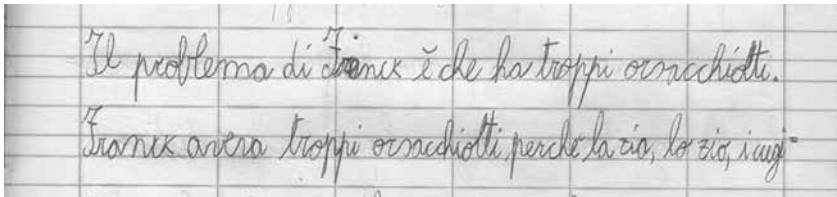 Il problema di Franck è che ha troppi orsacchiotti.
Franck aveva troppi orsacchiotti, perché la zia, lo zio, i cugi-